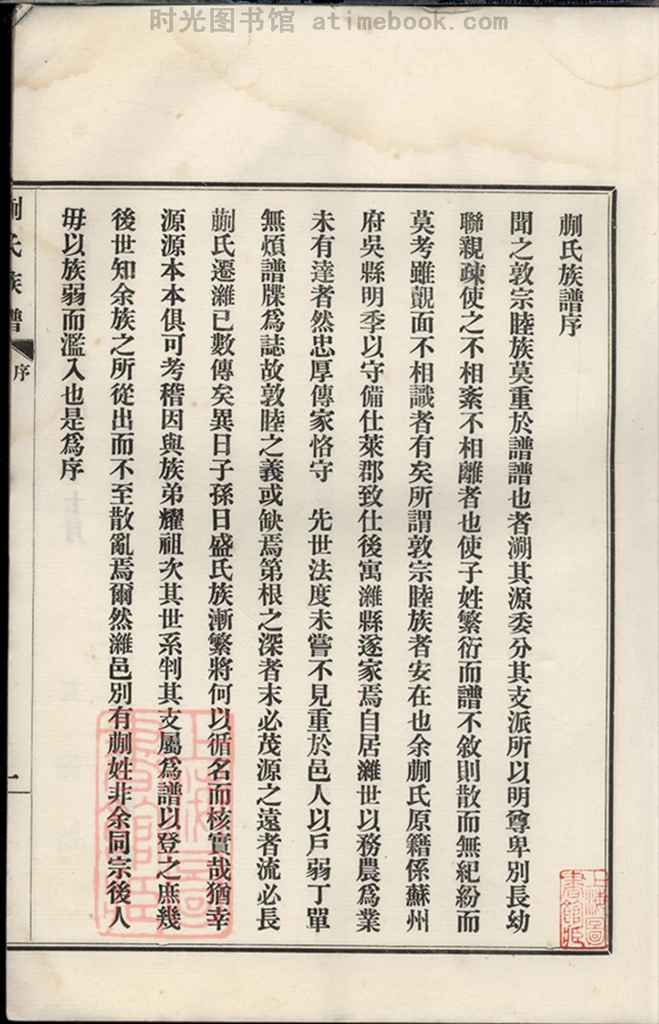 时光图书馆 atimebook.com
蒯氏族譜序
聞之敦宗睦族莫重於譜譜也者溯其源委分其支派所以明尊卑別長幼
聯親疎使之不相紊不相離者也使子姓繁衍而譜不敘則散而無紀紛而
莫考雖覿面不相識者有矣所謂敦宗睦族者安在也余蒯氏原籍係蘇州
府吳縣明季以守備仕萊郡致仕後寓濰縣遂家焉自居濰世以務農爲業
未有達者然忠厚傳家恪守 先世法度未嘗不見重於邑人以戶弱丁單
無煩譜牒爲誌故敦睦之義或缺焉第根之深者末必茂源之遠者流必長
蒯氏遷濰已數傳矣異日子孫日盛氏族漸繁將何以循名而核實哉猶幸
源源本本俱可考稽因與族弟耀祖次其世系判其支屬爲譜以登之庶幾
後世知余族之所從出而不至散亂焉爾然濰邑別有蒯姓非余同宗後人
毋以族弱而濫入也是爲序
蒯氏族譜 序 一
上海圖書館藏
上海圖書館藏